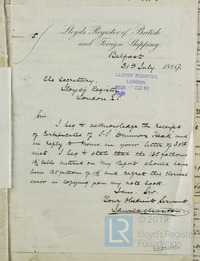 Lloyd's Register of British
and Foreign Shipping.
Belfast
31st July 1889.
The Secretary,
Lloyd's Register
London
LLOYD'S REGISTER,
LONDON
Sir
I beg to acknowledge the receipt
of Certificates of S.S.
in reply to yours in your letter of 30th
inst I beg to state that the 135 fathoms
entered on my Report should have
been 135 fathoms of and regret this clerical
error in copying from my note book.
I am Sir
Your Obedient Servant
LR
FOUNDATION